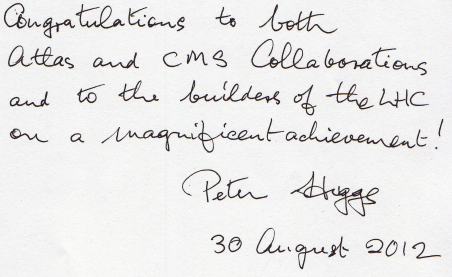 Congratulations to both
Atlas and CMS Collaborations
and to the builders of the LHC
on a magnificent achievement!
Peter Higgs
30 August 2012